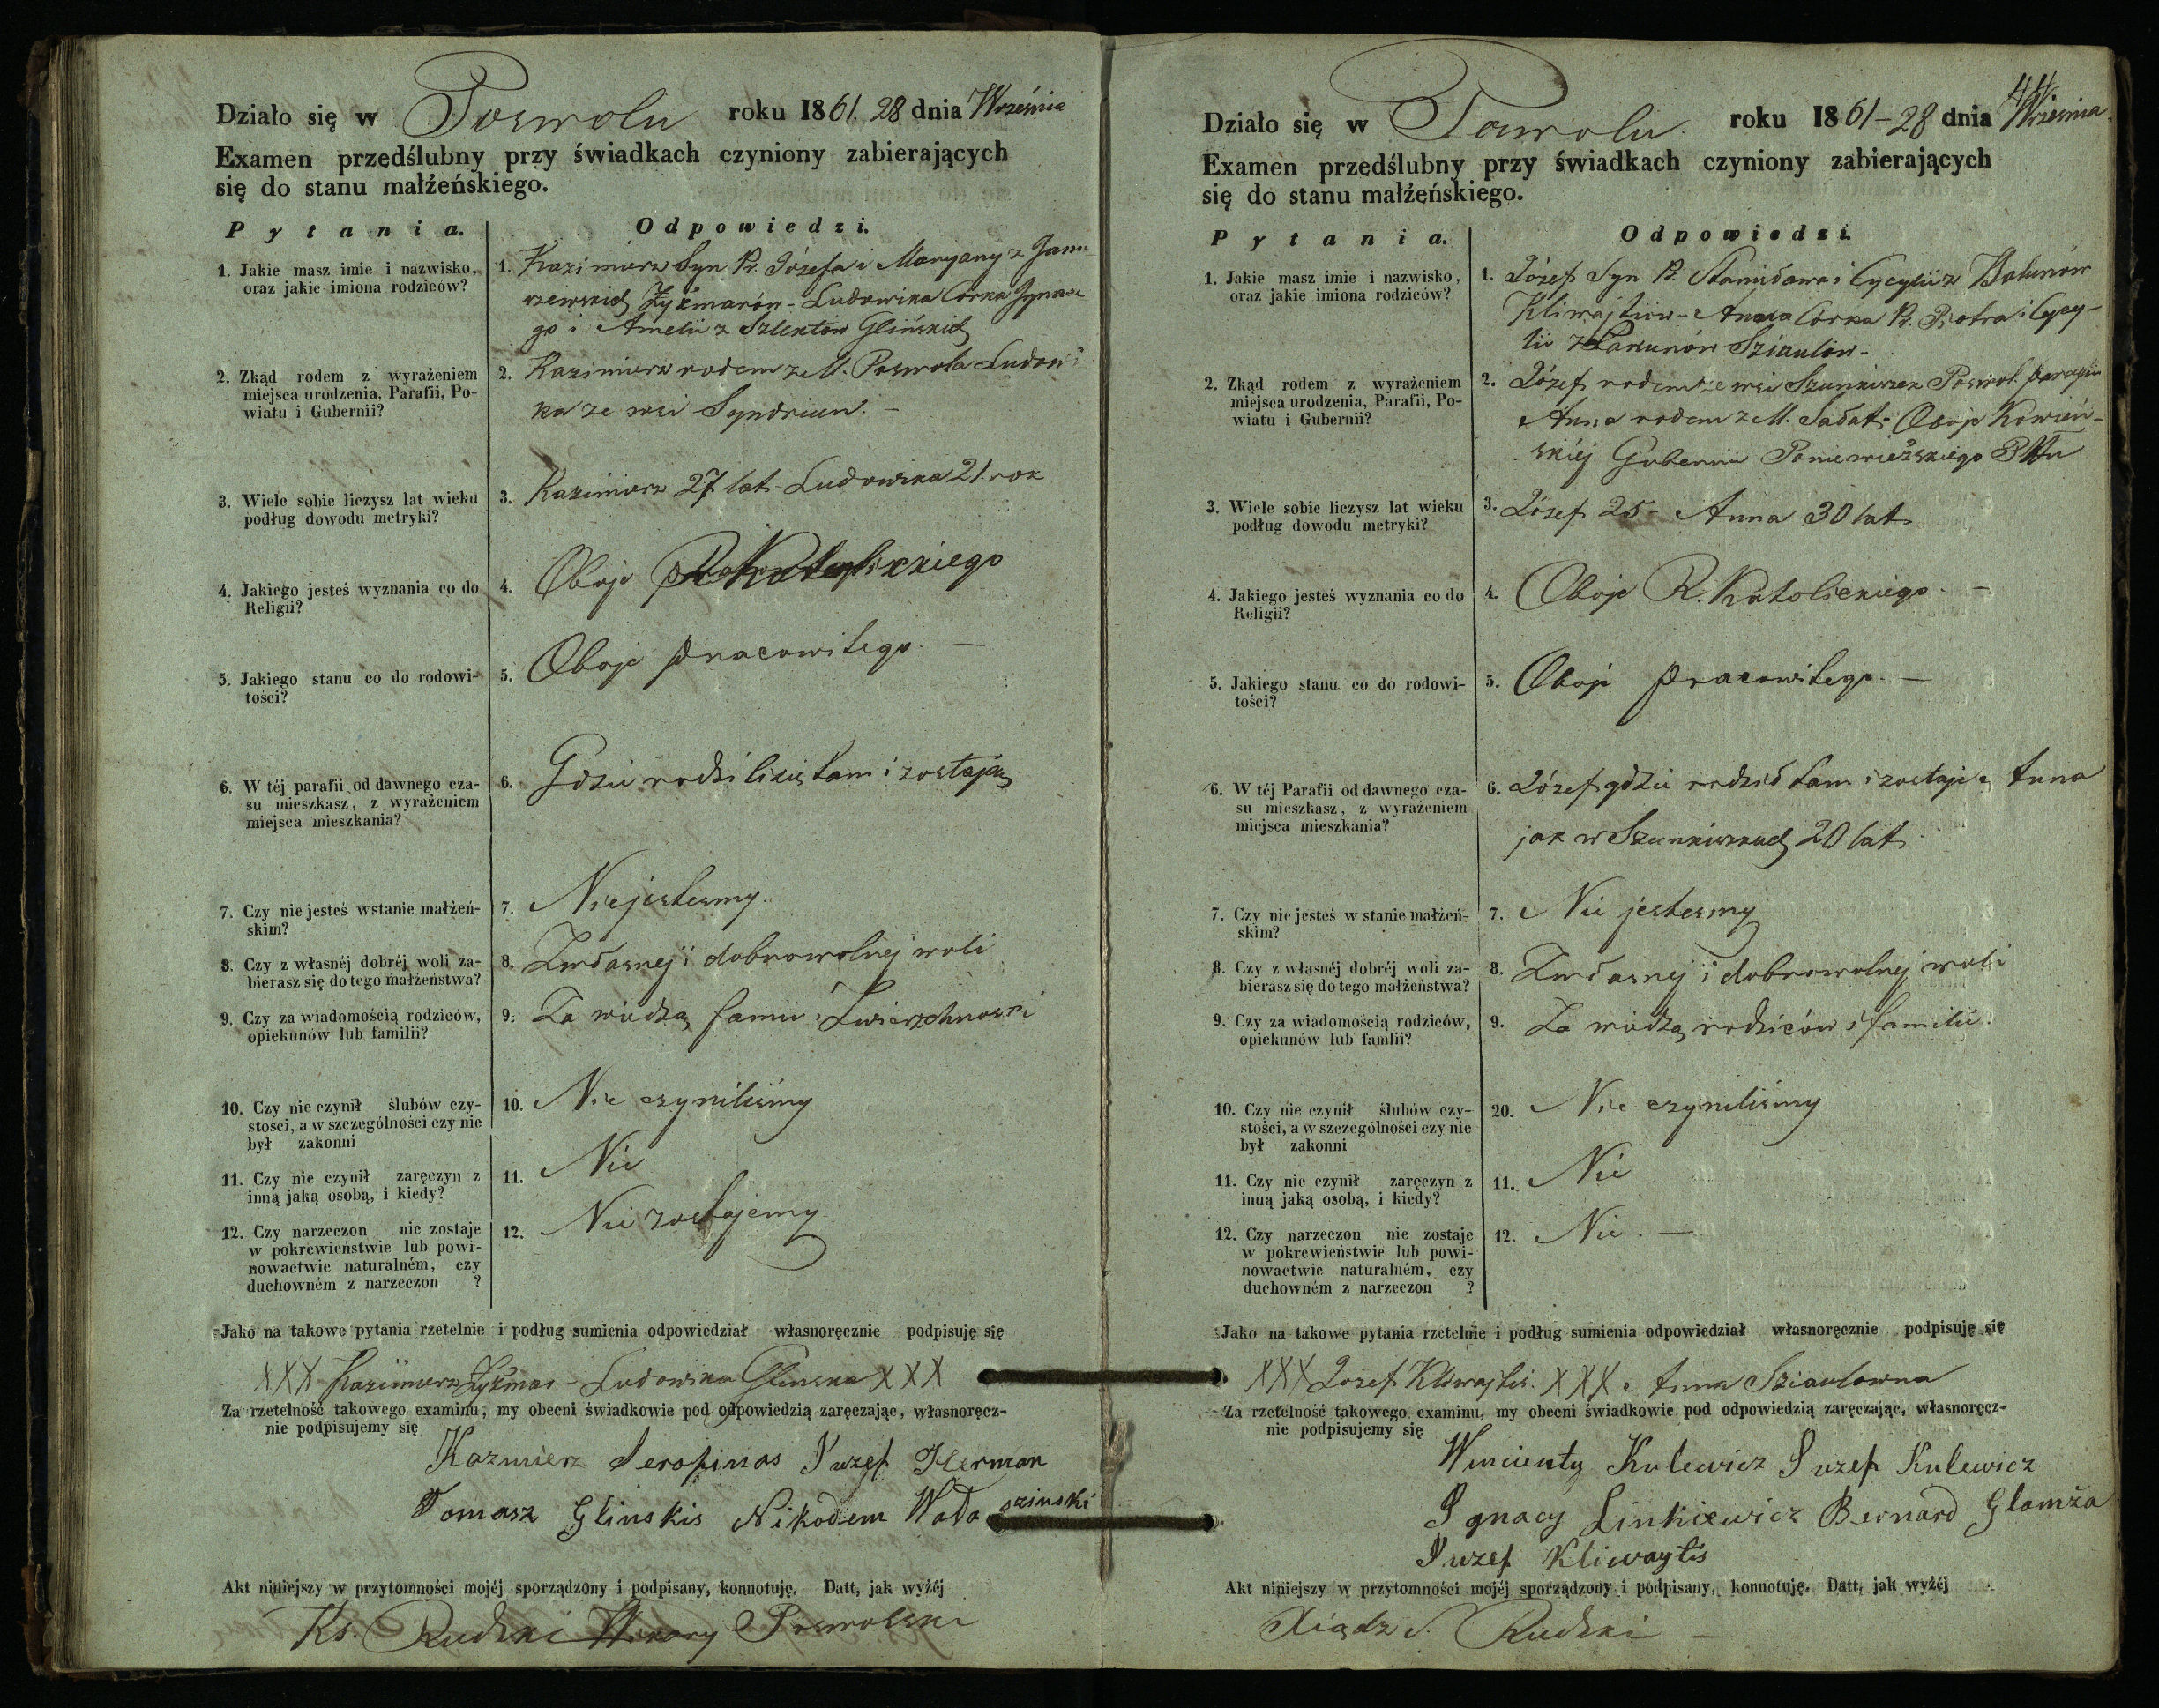 Działo się w Poswolu roku 1861. 28 dnia Września
Examen przedślubny przy świadkach czyniony zabierających
się do stanu małżeńskiego.
Pytania. Odpowiedzi.
1. Jakie masz imie i nazwisko,
oraz jakie imiona rodziców?
1. Kazimierz Syn Pr. Józefa i Maryany z
Żyżmarów - Ludowika Córka Ignace
go i Amelii z Szlektów Glińskich
2. Zkąd rodem z wyrażeniem
miejsca urodzenia, Parafii, Po-
wiatu i Gubernii?
2. Kazimierz rodem z M. Poswola Ludowi
ka ze wsi Syndriun. -
3. Wiele sobie liczysz lat wieku
podług dowodu metryki?
3. Kazimierz 27 lat - Ludowika 21. rok
4. Jakiego jesteś wyznania co do
Religii?
4. Oboje Katolickiego
5. Jakiego stanu co do rodowi-
tości?
5. Oboje pracowitego. -
6. W téj parafii od dawnego cza-
su mieszkasz, z wyrażeniem
miejsca mieszkania?
6. Gdzie rodzili się tam i zostają
7. Czy nie jesteś w stanie małżeń-
skim?
7. Nie jestesmy.
8. Czy z własnéj dobréj woli za-
bierasz się do tego małżeństwa?
8. Z własnej i dobrowolnej woli
9. Czy za wiadomością rodziców,
opiekunów lub familii?
9. Za wiedzą famii i Zwierzchnosci
10. Czy nie czynił ślubów czy-
stości, a w szczególności czy nie
był zakonni
10. Nie czyniliśmy
11. Czy nie czynił zaręczyn z
inną jaką osobą, i kiedy?
11. Nie
12. Czy narzeczon nie zostaje
w pokrewieństwie lub powi-
nowactwie naturalném, czy
duchowném z narzeczon ?
12. Nie zostajemy
Jako na takowe pytania rzetelnie i podług sumienia odpowiedział własnoręcznie podpisuję się
XXX Kazimierz Żyżmar - Ludowika Glinska XXX
Za rzetelność takowego examinu, my obecni świadkowie pod odpowiedzią zaręczając, własnoręcz-
nie podpisujemy się
Kazmierz Serafinas Juzef Herman
Tomasz Glinskis Nikodem
Akt niniejszy w przytomności mojéj sporządzony i podpisany, konnotuję. Datt, jak wyżéj
Ks. Rudzki Wikary Poswolski
44
Działo się w Poswolu. roku 1861 - 28 dnia Września.
Examen przedślubny przy świadkach czyniony zabierających
się do stanu małżeńskiego.
Pytania. Odpowiedzi.
1. Jakie masz imie i nazwisko,
oraz jakie imiona rodziców?
1. Józef Syn Pr. Stanisława i Cycylii z Balunów
Kliwajtiów - Anna Córka Pr. Piotra i Cycy-
lii z Sziaulów -
2. Zkąd rodem z wyrażeniem
miejsca urodzenia, Parafii, Po-
wiatu i Gubernii?
2. Józef rodem ze wsi Poswol. parafii
Anna rodem z M. Sałat - Oboje Kowień-
skiéj Gubernii Poniewieżskiego Pttu
3. Wiele sobie liczysz lat wieku
podług dowodu metryki?
3. Józef 25 - Anna 30 lat
4. Jakiego jesteś wyznania co do
Religii?
4. Oboje R. Katolickiego. -
5. Jakiego stanu co do rodowi-
tości?
5. Oboje pracowitego. -
6. W téj Parafii od dawnego cza-
su mieszkasz, z wyrażeniem
miejsca mieszkania?
6. Józef gdzie rodził tam i zostaje a Anna
jak w 20 lat
7. Czy nie jesteś w stanie małżeń-
skim?
7. Nie jestesmy
8. Czy z własnéj dobréj woli za-
bierasz się do tego małżeństwa?
8. Z własnej i dobrowolnej woli
9. Czy za wiadomością rodziców,
opiekunów lub famlii?
9. Za wiedzą rodziców i familii
10. Czy nie czynił ślubów czy-
stości, a w szczególności czy nie
był zakonni
20. Nie czyniliśmy
11. Czy nie czynił zaręczyn z
inuą jaką osobą, i kiedy?
11. Nie
12. Czy narzeczon nie zostaje
w pokrewieństwie lub powi-
nowactwie naturalném, czy
duchowném z narzeczon ?
12. Nie. -
Jako na takowe pytania rzetelnie i podług sumienia odpowiedział własnoręcznie podpisuję się
XXX Józef Kliwajtis. XXX Anna Sziaulowna
Za rzetelność takowego examinu, my obecni świadkowie pod odpowiedzią zaręczając, własnoręcz-
nie podpisujemy się
Wincenty Kulewicz Juzef Kulewicz
Ignacy Linkiewicz Bernard Glamża
Juzef Kliwaytis
Akt niniejszy w przytomności mojéj sporządzony i podpisany, konnotuję. Datt, jak wyżéj
Xiądz J. Rudzki -